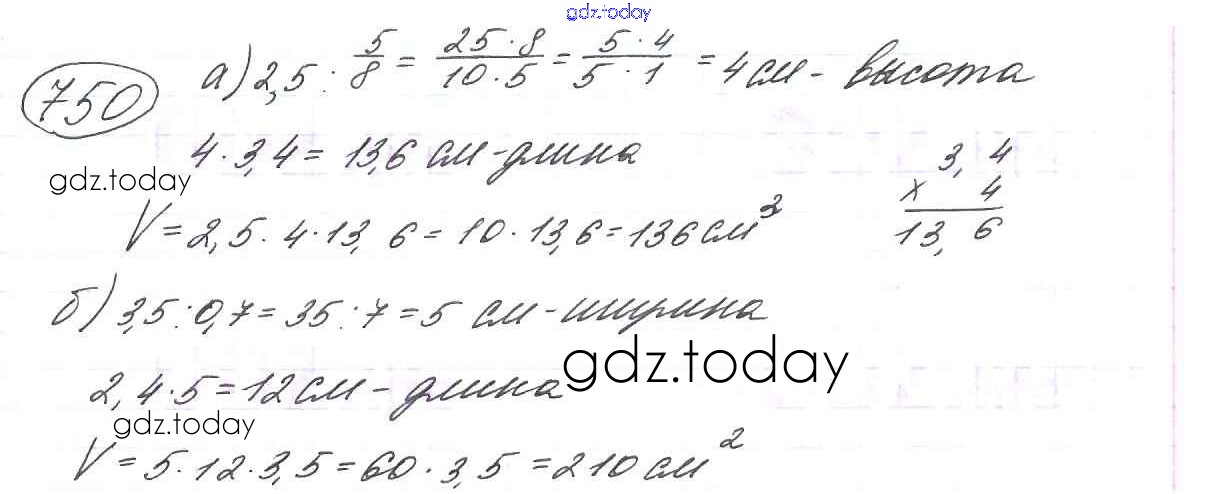 gdz.today
750 а) 2,5 : 5/8 = 25·8/10·5 = 5·4/5·1 = 4 см - высота
4·3,4 = 13,6 см - длина
3,4
gdz.today
× 4
V = 2,5·4·13,6 = 10·13,6 = 136 см³
13,6
б) 3,5 : 0,7 = 35 : 7 = 5 см - ширина
gdz.today
2,4·5 = 12 см - длина
gdz.today
V = 5·12·3,5 = 60·3,5 = 210 см²